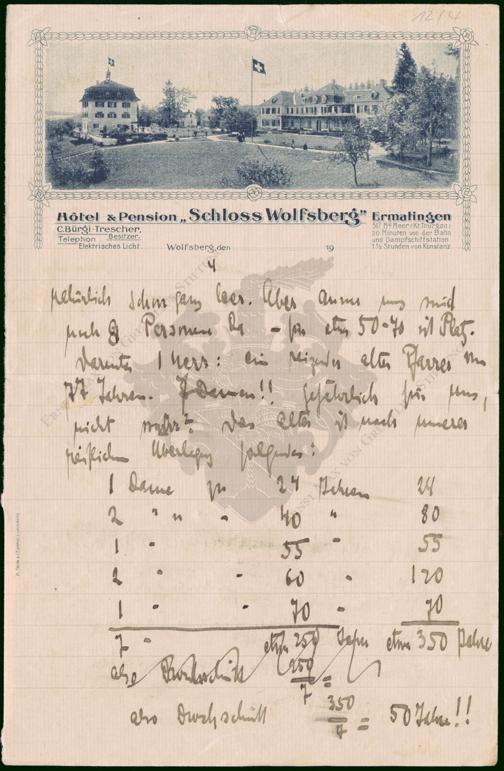 12/4
Hôtel & Pension „Schloss Wolfsberg" Ermatingen
C. Bürgi-Trescher,
Besitzer.
Telephon
Elektrisches Licht.
517 Mtr. ü. Meer (Kt. Thurgau)
20 Minuten von der Bahn
und Dampfschiffstation
1½ Stunden von Konstanz
Wolfsberg, den 19
4
natürlich schon ganz leer. Aber ausser uns sind
noch 8 Personen da – für etwa 50-70 ist Platz.
Darunter 1 Herr: ein reizender alter Pfarrer von
77 Jahren. 7 Damen!! gefährlich für uns,
nicht wahr? Das Alter ist nach unserer
reiflichen Überlegung folgendes:
1 Dame zu 24 Jahren 24
2 " " " 40 " 80
1 " 55 " 55
2 " " 60 " 120
1 " " 70 " 70
7 " etwa 250 Jahre etwa 350 Jahre
also Durchschnitt 250/7 =
also Durchschnitt 350/7 = 50 Jahre!!